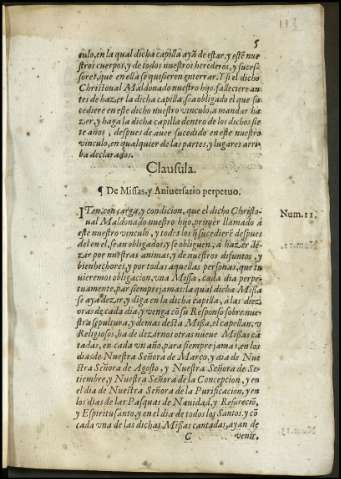 5
culo, en la qual dicha capilla ayã de estar, y estẽ nue
stros cuerpos, y de todos nuestros herederos, y suces-
sores, que en ella se quisieren enterrar. I si el dicho
Christoual Maldonado nuestro hijo falleciere an-
tes de hazer la dicha capilla sea obligado el que su-
cediere en este dicho nuestro vinculo, a mandar haz
zer, y haga la dicha capilla dentro de los dichos sie
te años, despues de auer sucedido en este nuestro
vinculo, en qualquier de las partes, y lugares arri-
ba declarados.
Clausula.
¶ De Missas, y Aniuersario perpetuo.
ITen, con carga, y condicion, que el dicho Christo-
ual Maldonado nuestro hijo, primer llamado â
este nuestro vinculo, y todos los q̃ sucedierẽ despues
del en el, sean obligados y se obliguen, â hazer de-
zar por nuestras animas, y de nuestros difuntos, y
bienhechores, y por todas aquellas personas, que tu
uieremos obligacion, vna Missa, cada dia perpe-
tuamente, par siempre jamas: la qual dicha Missa
se aya dezir, y diga en la dicha capilla, â las diez
oras de cada dia y venga cõ su Responso sobre nues-
tra sepultura, y demas desta Missa, el capellan, ò
Religiosos, ha de dezir nos otras nueue Missas cã
tadas, en cada vn año, para siempre jamas, en los
dias de Nuestra Señora de Março, y dia de Nue
stra Señora de Agosto, y Nuestra Señora de Se-
tiembre, y Nuestra Señora de la Concepcion, y en
el dia de Nuestra Señora de la Purificacion, y en
los dias de las Pasquas de Nauidad, y Resurectiõ,
y Espiritu santo, y en el dia de todos los Santos, y cõ
cada vna de las dichas Missas cantadas, ayan de
C venir,
Num. 11.